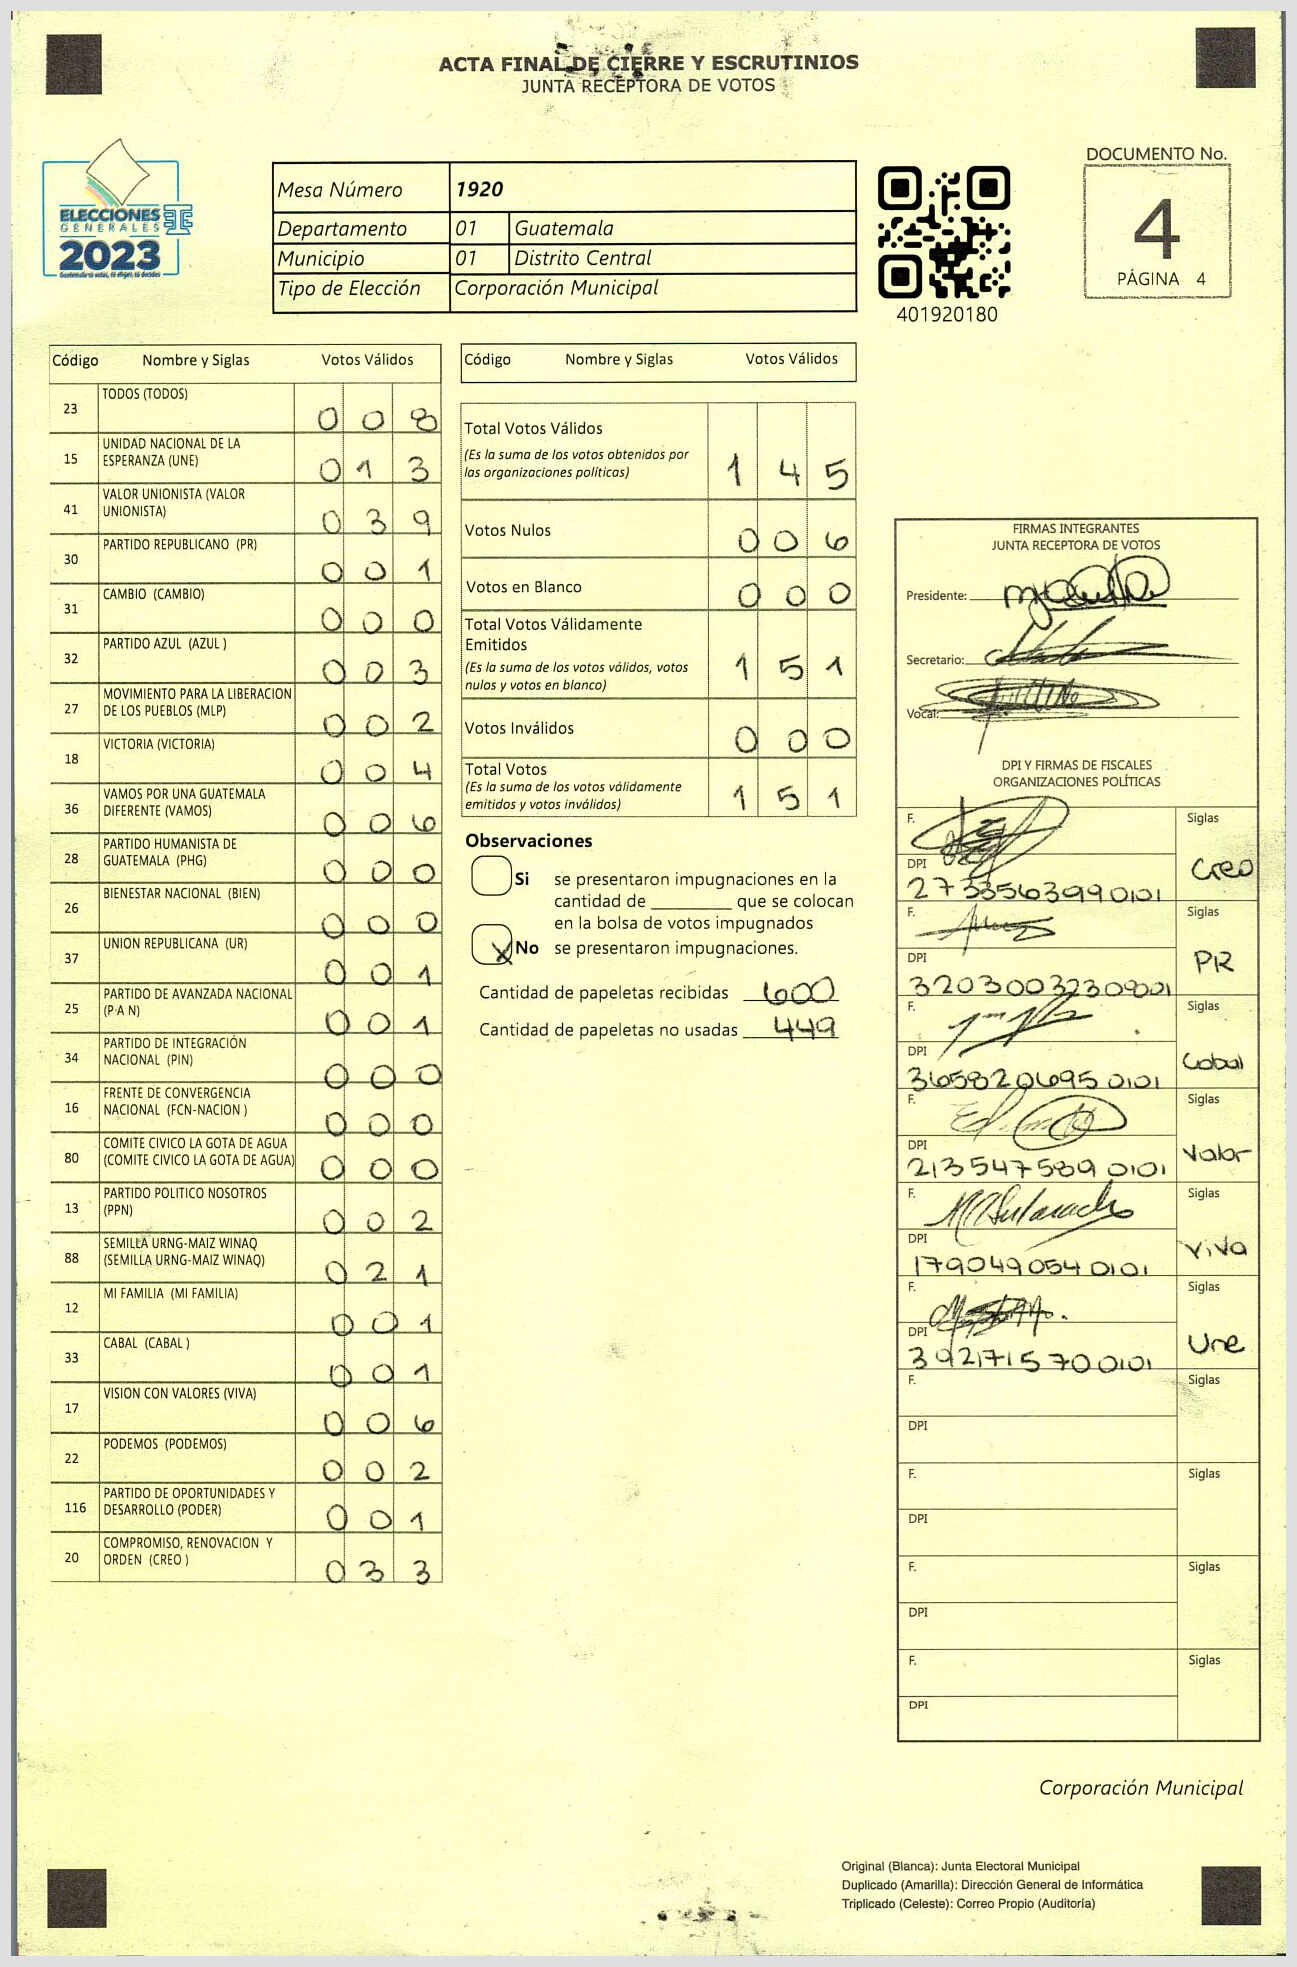 ACTA FINAL DE CIERRE Y ESCRUTINIOS
JUNTA RECEPTORA DE VOTOS
ELECCIONES
GENERALES
2023
Mesa Número 1920
Departamento 01 Guatemala
Municipio 01 Distrito Central
Tipo de Elección Corporación Municipal
401920180
DOCUMENTO No.
4
PÁGINA 4
Código Nombre y Siglas Votos Válidos
23 TODOS (TODOS) 0 0 8
15 UNIDAD NACIONAL DE LA
ESPERANZA (UNE) 0 1 3
41 VALOR UNIONISTA (VALOR
UNIONISTA) 0 3 9
30 PARTIDO REPUBLICANO (PR) 0 0 1
31 CAMBIO (CAMBIO) 0 0 0
32 PARTIDO AZUL (AZUL ) 0 0 3
27 MOVIMIENTO PARA LA LIBERACION
DE LOS PUEBLOS (MLP) 0 0 2
18 VICTORIA (VICTORIA) 0 0 4
36 VAMOS POR UNA GUATEMALA
DIFERENTE (VAMOS) 0 0 6
28 PARTIDO HUMANISTA DE
GUATEMALA (PHG) 0 0 0
26 BIENESTAR NACIONAL (BIEN) 0 0 0
37 UNION REPUBLICANA (UR) 0 0 1
25 PARTIDO DE AVANZADA NACIONAL
(P A N) 0 0 1
34 PARTIDO DE INTEGRACIÓN
NACIONAL (PIN) 0 0 0
16 FRENTE DE CONVERGENCIA
NACIONAL (FCN-NACION ) 0 0 0
80 COMITE CIVICO LA GOTA DE AGUA
(COMITE CIVICO LA GOTA DE AGUA) 0 0 0
13 PARTIDO POLITICO NOSOTROS
(PPN) 0 0 2
88 SEMILLA URNG-MAIZ WINAQ
(SEMILLA URNG-MAIZ WINAQ) 0 2 1
12 MI FAMILIA (MI FAMILIA) 0 0 1
33 CABAL (CABAL ) 0 0 1
17 VISION CON VALORES (VIVA) 0 0 6
22 PODEMOS (PODEMOS) 0 0 2
116 PARTIDO DE OPORTUNIDADES Y
DESARROLLO (PODER) 0 0 1
20 COMPROMISO, RENOVACION Y
ORDEN (CREO ) 0 3 3
Código Nombre y Siglas Votos Válidos
Total Votos Válidos
(Es la suma de los votos obtenidos por
las organizaciones políticas) 1 4 5
Votos Nulos 0 0 6
Votos en Blanco 0 0 0
Total Votos Válidamente
Emitidos
(Es la suma de los votos válidos, votos
nulos y votos en blanco) 1 5 1
Votos Inválidos 0 0 0
Total Votos
(Es la suma de los votos válidamente
emitidos y votos inválidos) 1 5 1
Observaciones
Si se presentaron impugnaciones en la
cantidad de ________ que se colocan
en la bolsa de votos impugnados
X No se presentaron impugnaciones.
Cantidad de papeletas recibidas 600
Cantidad de papeletas no usadas 449
FIRMAS INTEGRANTES
JUNTA RECEPTORA DE VOTOS
Presidente:
Secretario:
Vocal:
DPI Y FIRMAS DE FISCALES
ORGANIZACIONES POLÍTICAS
F. Siglas
DPI Creo
2733563990101
F. Siglas
DPI PR
3203003230901
F. Siglas
DPI Cabal
3658206950101
F. Siglas
DPI Valor
2135475890101
F. Siglas
DPI Viva
1790490540101
F. Siglas
DPI Une
3921715700101
F. Siglas
DPI
F. Siglas
DPI
F. Siglas
DPI
F. Siglas
DPI
Corporación Municipal
Original (Blanca): Junta Electoral Municipal
Duplicado (Amarilla): Dirección General de Informática
Triplicado (Celeste): Correo Propio (Auditoría)